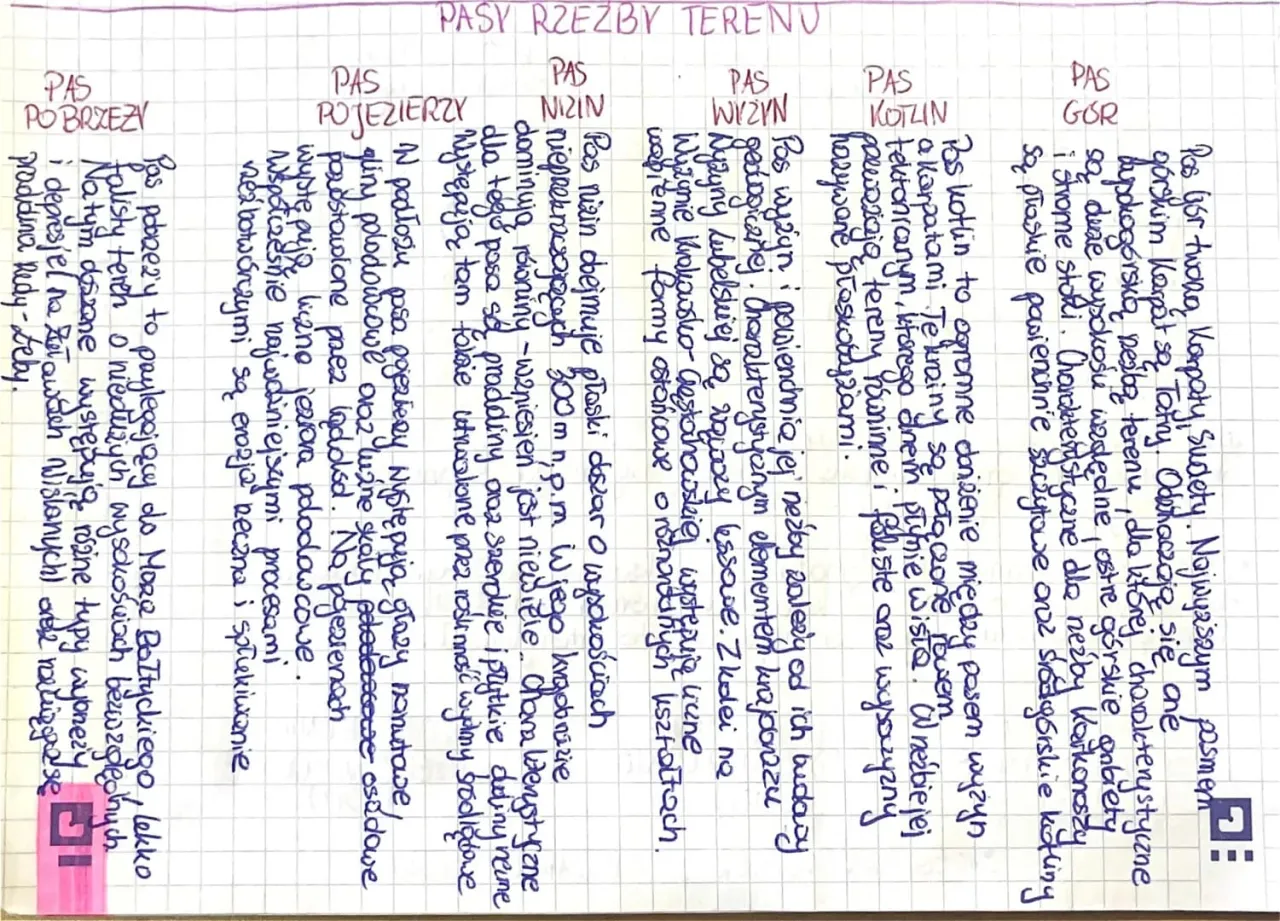 PASY RZEŹBY TERENU
PAS
POBRZEŻY
Pas pobrzeży to przylegający do Morza Bałtyckiego, lekko
falisty teren o niedużych wysokościach bezwzględnych.
Na tym obszarze występują różne typy wybrzeży
i depresje (na Żuławach Wiślanych) oraz rozciąga się
pradolina Redy-Łeby.
PAS
POJEZIERZY
W podłożu pasa pojezierzy występują głazy narzutowe,
gliny polodowcowe oraz luźne skały osadowe
pozostawione przez lądolód. Na pojezierzach
występują liczne jeziora polodowcowe.
Współcześnie najważniejszymi procesami
rzeźbotwórczymi są erozja rzeczna i spłukiwanie
PAS
NIZIN
Pas nizin obejmuje płaski obszar o wysokościach
nieprzekraczających 300 m n.p.m. W jego krajobrazie
dominują równiny - wzniesień jest niewiele. Charakterystyczne
dla tego pasa są pradoliny oraz szerokie i płytkie doliny rzeczne
Występują tam także utrwalone przez roślinność wydmy śródlądowe
PAS
WYŻYN
Pas wyżyn i powierzchnia jej rzeźby zależy od ich budowy
geologicznej. Charakterystycznym elementem krajobrazu
Wyżyny Lubelskiej są wąwozy lessowe. Z kolei na
Wyżynie Krakowsko-Częstochowskiej występują liczne
wapienne formy ostańcowe o różnorodnych kształtach.
PAS
KOTLIN
Pas kotlin to ogromne obniżenie między pasem wyżyn
a Karpatami. Te krainy są połączone rowem
tektonicznym, którego dnem płynie Wisła. W rzeźbie jej
przeważają tereny równinne i faliste oraz wysoczyzny
nazywane płaskowyżami.
PAS
GÓR
Pas Gór tworzą Karpaty, Sudety. Najwyższym pasmem
górskim Karpat są Tatry. Odznaczają się one
wysokogórską rzeźbą terenu, dla której charakterystyczne
są duże wysokości względne, ostre górskie grzbiety
i strome stoki. Charakterystyczne dla rzeźby Karkonoszy
są płaskie powierzchnie szczytowe oraz śródgórskie kotliny